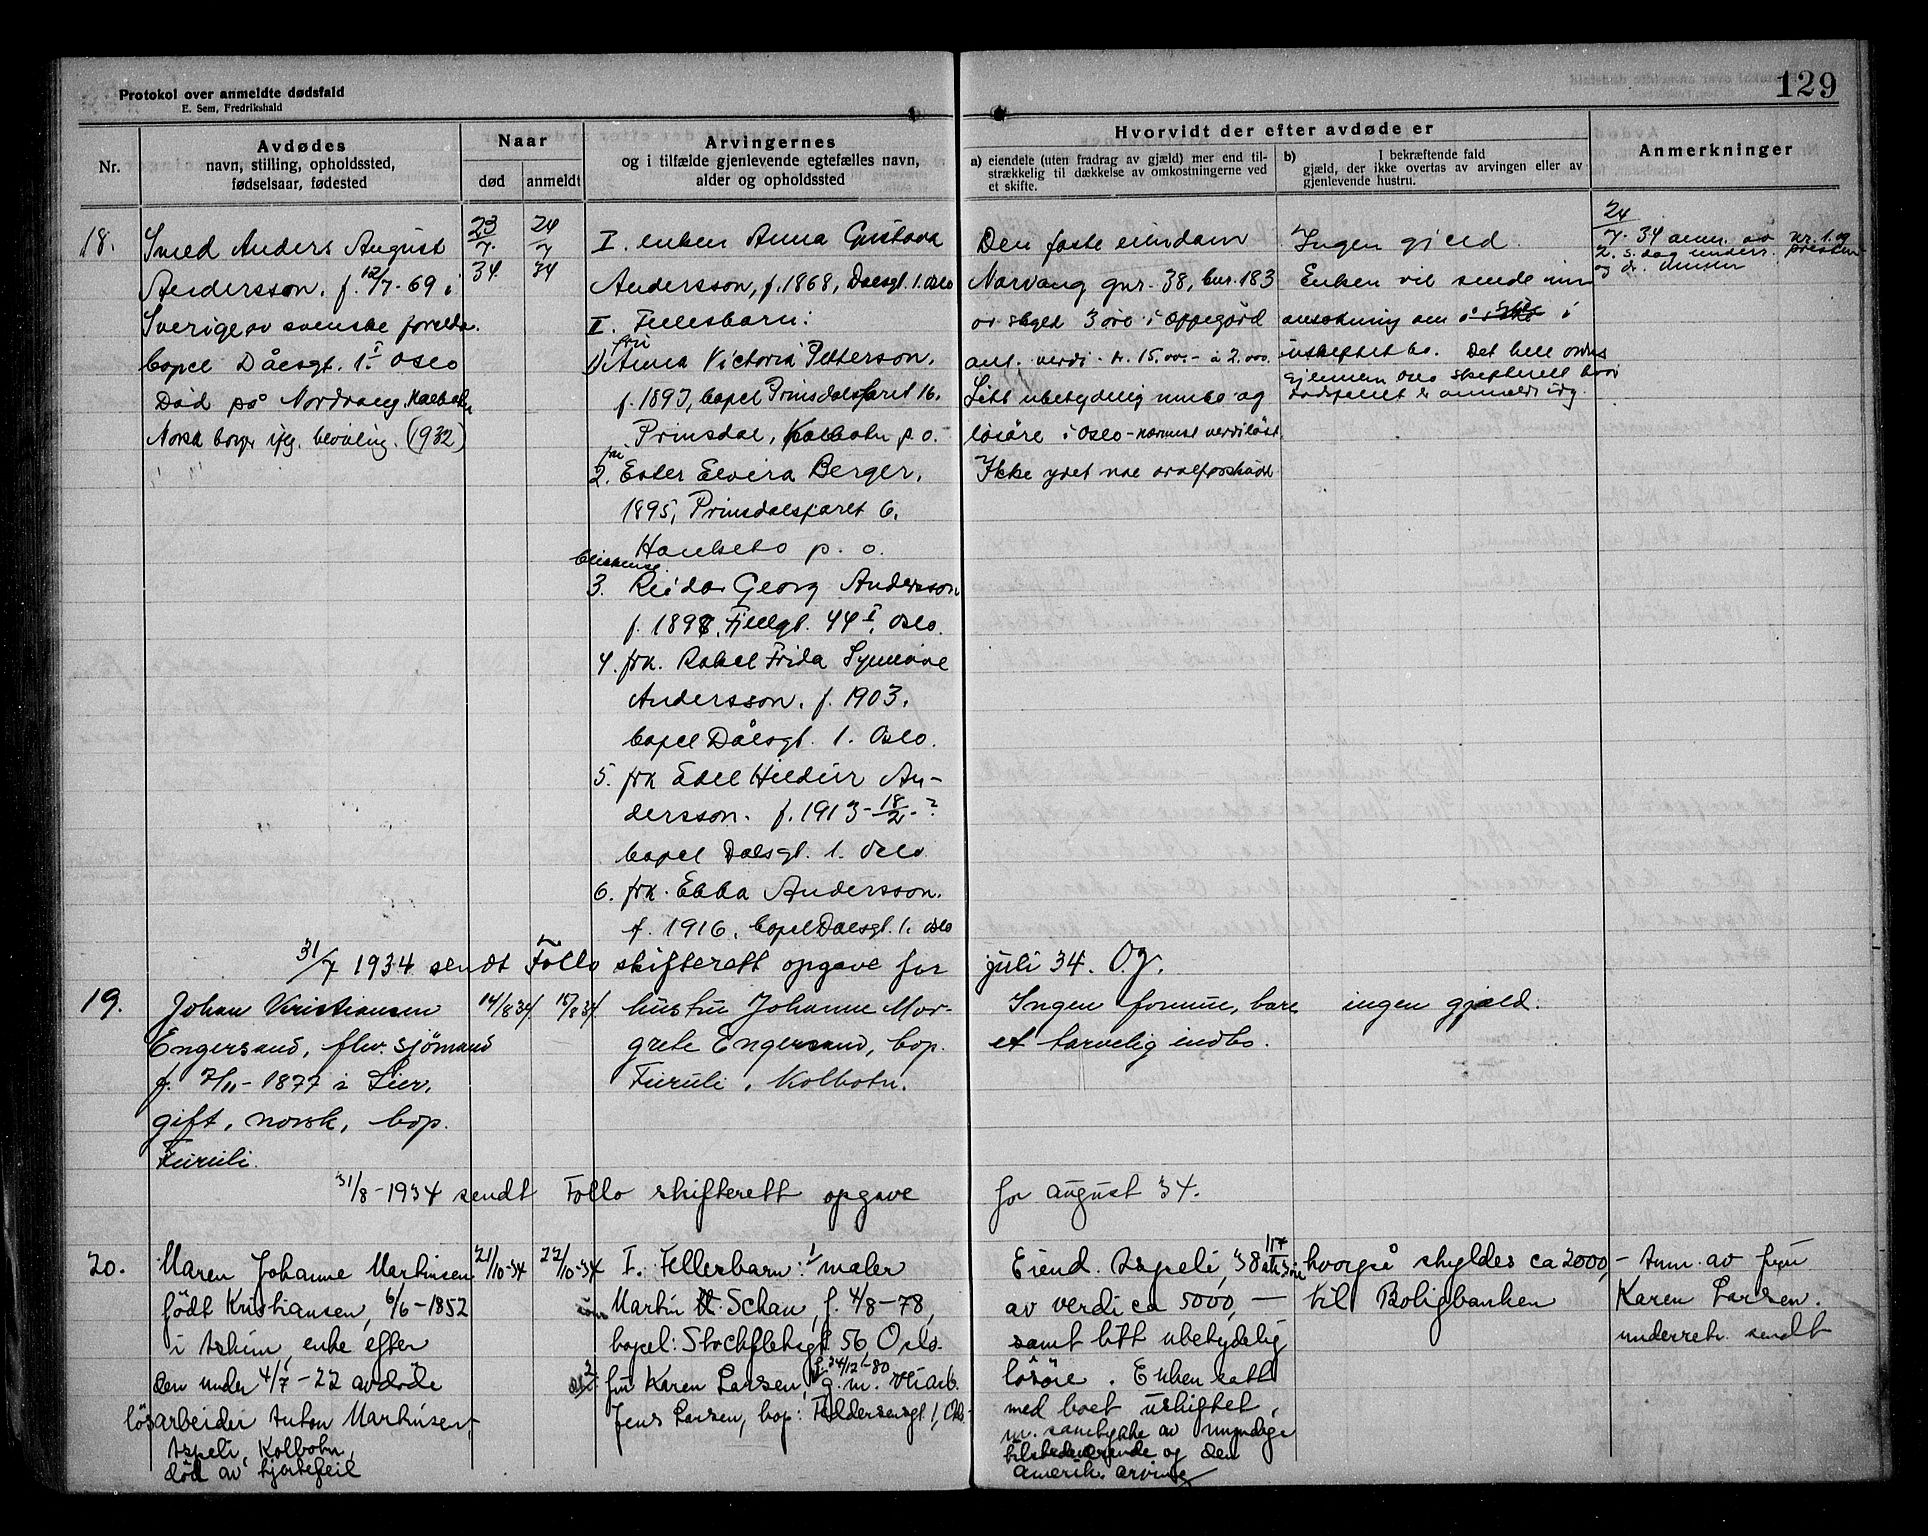 Protokol over anmeldte dødsfald
E. Sem, Fredrikshald
129
Nr.
Avdødes
navn, stilling, opholdssted,
fødselsaar, fødested
Naar
død
anmeldt
Arvingernes
og i tilfælde gjenlevende egtefælles navn,
alder og opholdssted
Hvorvidt der efter avdøde er
a) eiendele (uten fradrag av gjæld) mer end til-
strækkelig til dækkelse av omkostningerne ved
et skifte.
b) I bekræftende fald
gjæld, der ikke overtas av arvingen eller av
gjenlevende hustru.
Anmerkninger
18.
Smed Anders August
Andersson. f. 12/7-69 i
Sverige av svenske foreldre.
bopel Dålsgt. 1 I Oslo
Død på Nordvang, Kolbotn
Norsk borger ifg. bevilling. (1932)
" "
23
7.
34
24
7
34
I. enken Anna Gustava
Andersson, f. 1868, Daesgt. 1. Oslo
II. Fellesbarn:
fru
1) Anna Victoria Petterson.
f. 1893, bopel Prinsdalsfaret 16.
Prinsdal, Kolbotn p.o.
fru
2. Ester Elvira Berger.
1895, Prinsdalsfaret 6.
Hauketo p. o.
3. Reidar Georg Andersson
f. 1898, Fjellgt. 44 I, Oslo.
4. frk. Rakel Frida Synnøve
Andersson. f. 1903.
bopel Dålsgt. 1. Oslo.
5. frk Edel Hildur An-
dersson. f. 1913-18/2-?
bopel Dalsgt. 1. Oslo.
6. frk. Ebba Andersson.
f. 1916. bopel Dalsgt. 1. Oslo
Den faste eiendom
Norvang gnr. 38, bnr. 183
av skyld 3 øre i Oppegård
ant. verdi - kr. 15.000.- à 2.000.
Litt ubetydelig innbo og
løsøre i Oslo - nærmest verdiløst.
Ikke ydet noe
Ingen gjeld.
Enken vil sende inn
ansøkning om i
uskiftet bo. Det hele ordnes
gjennem Oslo skifterett hvor
dødsfallet er anmeldt idg.
24
7. 34 anm. av nr. 1. og
2. s. dag underr. presten
og
31/7 1934 sendt Follo skifterett opgave for juli 34. O.J.
19.
Johan Kristiansen
Engersand, fhv. sjømand
f. 7/11-1877 i Lier,
gift, norsk, bop.
Furuli.
14/8 34
15/8 34
hustru Johanne Mar-
grete Engersand, bop.
Furuli, Kolbotn.
Ingen formue, bare
et tarvelig indbo.
ingen gjæld.
31/8-1934 sendt Follo skifterett opgave for august 34.
20.
Maren Johanne Martinsen
født Kristiansen, 6/6-1852
i Askim, enke efter
den under 4/7-22 avdøde
løsarbeider Anton Martinsen,
Aspeli, Kolbotn,
død av hjertefeil
21/10-34
22/10-34
I. Fellesbarn: 1/ maler
Martin Schau, f. 4/8-78,
bopel: Stockflethsgt 56 Oslo.
2 fru Karen Larsen, f. 24/12-80 g. m.
Jens Larsen, bop: Feldersensgt 1, Oslo
Eiend. Aspeli, 38 117
av verdi ca 5000,-
samt litt ubetydelig
løsøre. Enken satt
med boet uskiftet,
m. samtykke av myndige
tilstedeværende og den
amerik. arving
hvorpå skyldes ca 2000,-
til Boligbanken
Anm. av fru
Karen Larsen.
underretn. sendt